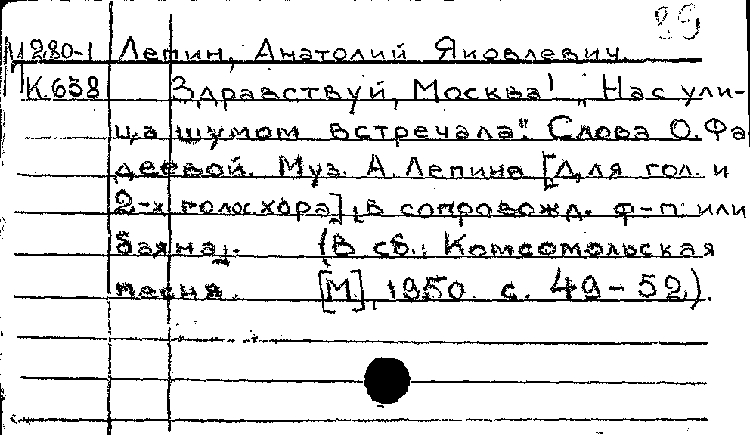 29
М 280-1 Лепин, Анатолий Яковлевич.
К 658 Здравствуй, Москва! „Нас ули-
ца шумом встречала". Слова О. Фа
деевой. Муз. А. Лепина [Для гол. и
2-х голос. хора], в сопровожд. ф-п. или
баяна. (В сб.: Комсомольская
песня. [М.], 1950. с. 49-52.).